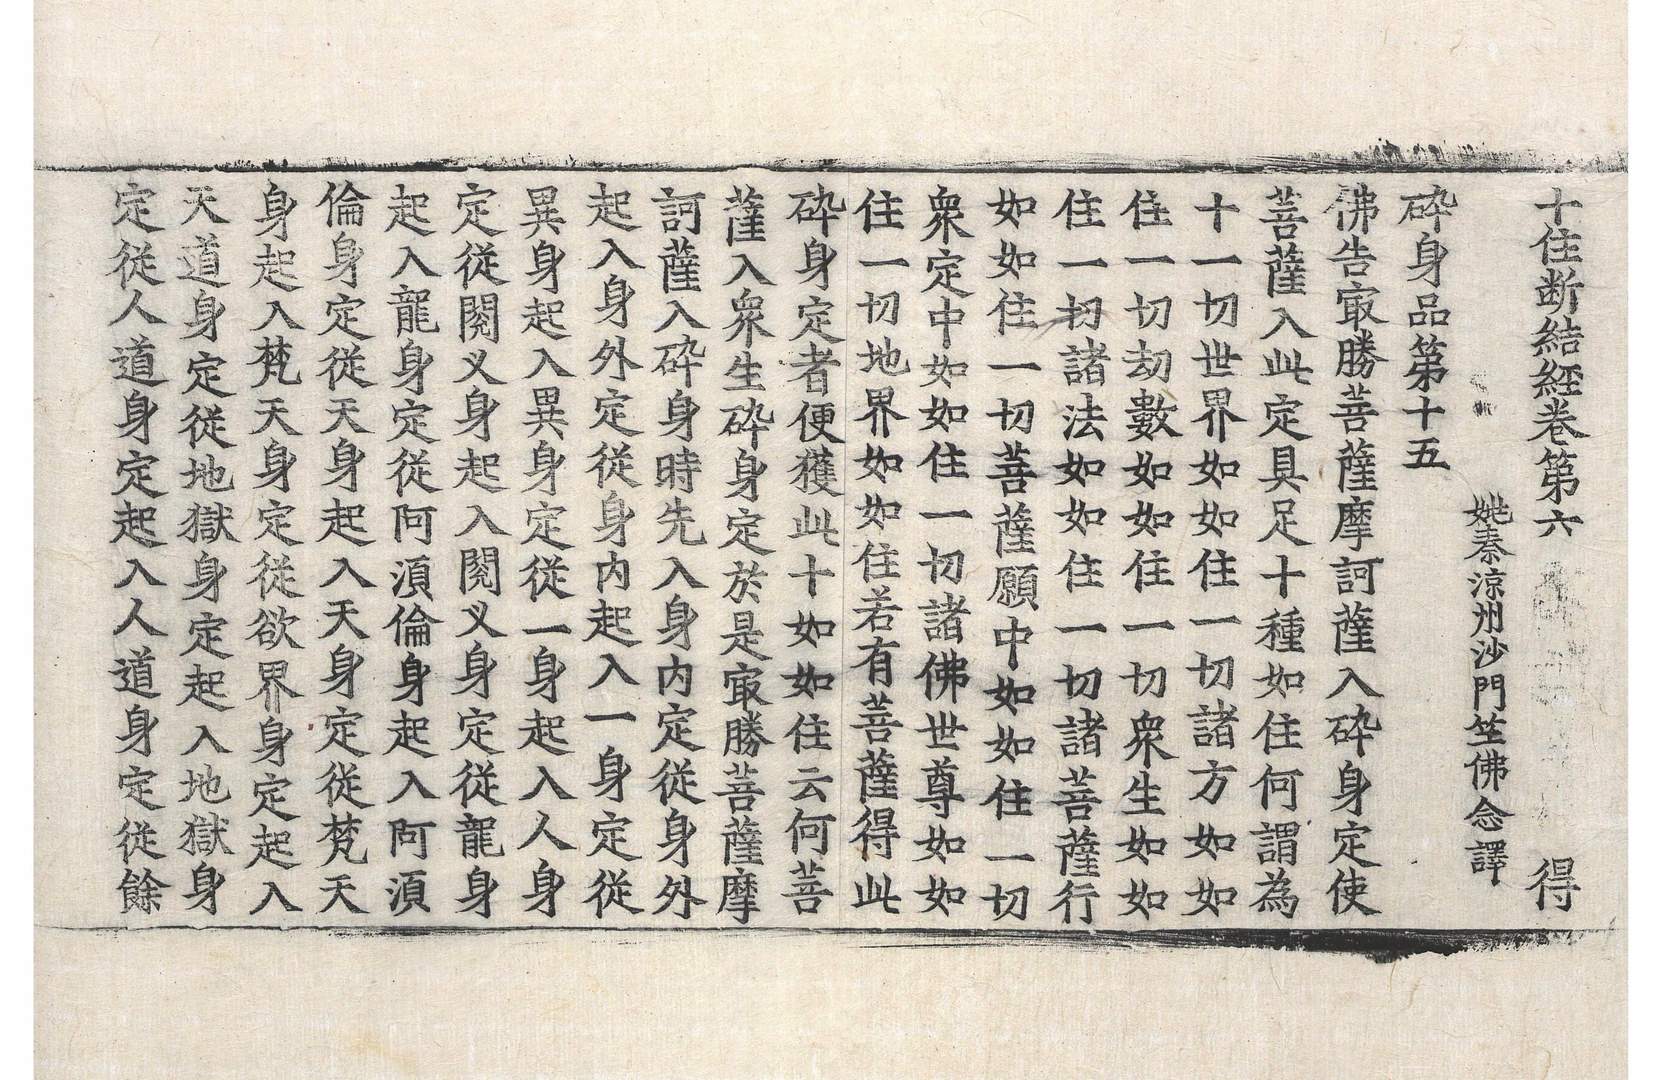 十住断結經卷第六 得
姚秦涼州沙門竺佛念譯
碎身品第十五
佛告㝡勝菩薩摩訶薩入碎身定使
菩薩入此定具足十種如住何謂為
十一切世界如如住一切諸方如如
住一切劫數如如住一切衆生如如
住一切諸法如如住一切諸菩薩行
如如住一切菩薩願中如如住一切
衆定中如如住一切諸佛世尊如如
住一切地界如如住若有菩薩得此
碎身定者便獲此十如如住云何菩
薩入衆生碎身定於是㝡勝菩薩摩
訶薩入碎身時先入身内定從身外
起入身外定從身内起入一身定從
異身起入異身定從一身起入人身
定從閱叉身起入閱叉身定從龍身
起入龍身定從阿湏倫身起入阿湏
倫身定從天身起入天身定從梵天
身起入梵天身定從欲界身定起入
天道身定從地獄身定起入地獄身
定從人道身定起入人道身定從餘